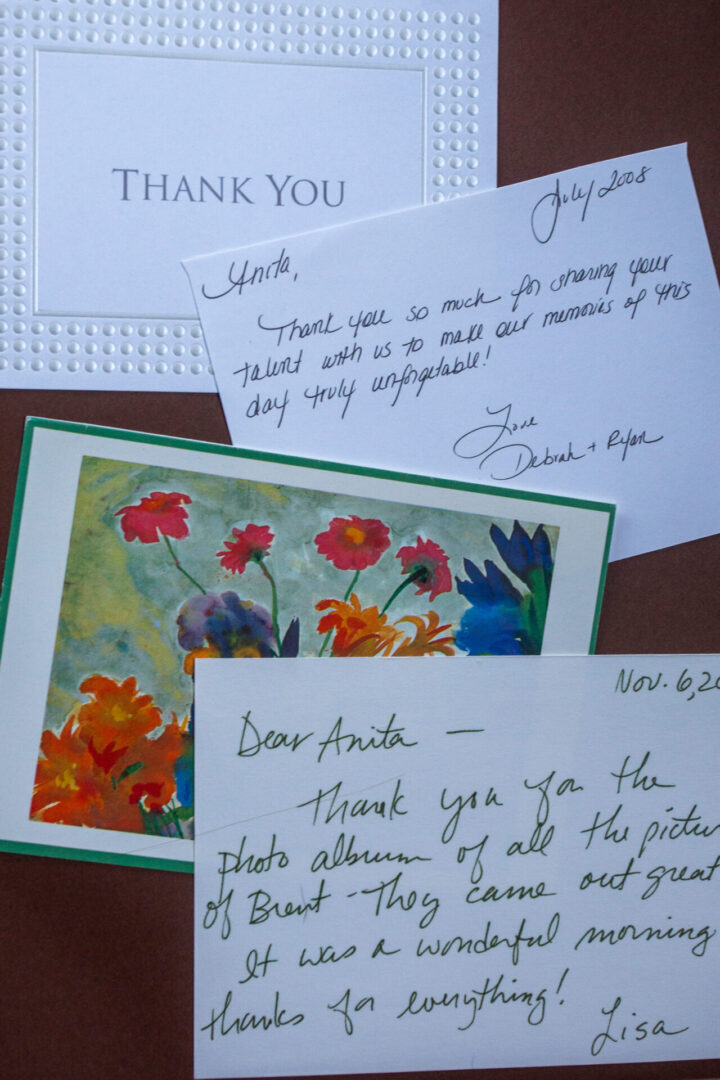 THANK YOU
July 2008
Anita,
Thank you so much for sharing your
talent with us to make our memories of this
day truly unforgetable!
Love
Debrah + Ryan
Nov. 6, 20
Dear Anita —
Thank you for the
photo album of all the pictur
of Brent - They came out great
It was a wonderful morning
thanks for everything!
Lisa